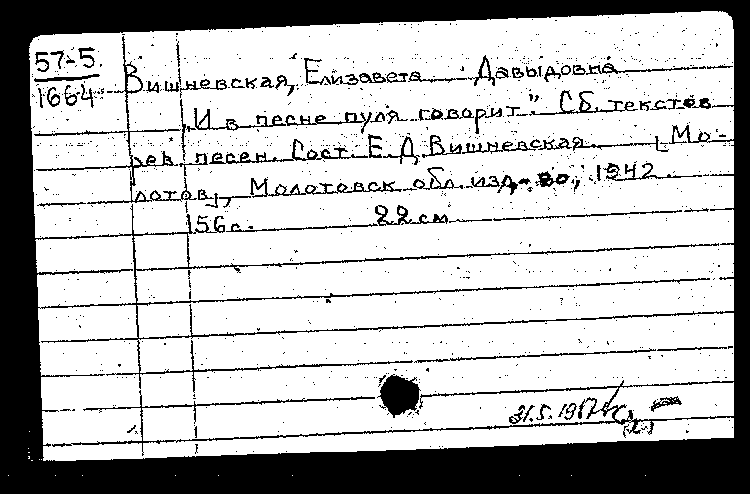 57-5.
1664
Вишневская, Елизавета Давыдовна
„И в песне пуля говорит". Сб. текстов
рек. песен. Сост. Е. Д. Вишневская. [Мо-
лотов], Молотовск. обл. изд-во, 1942.
156 с. 22 см
31.5.1967